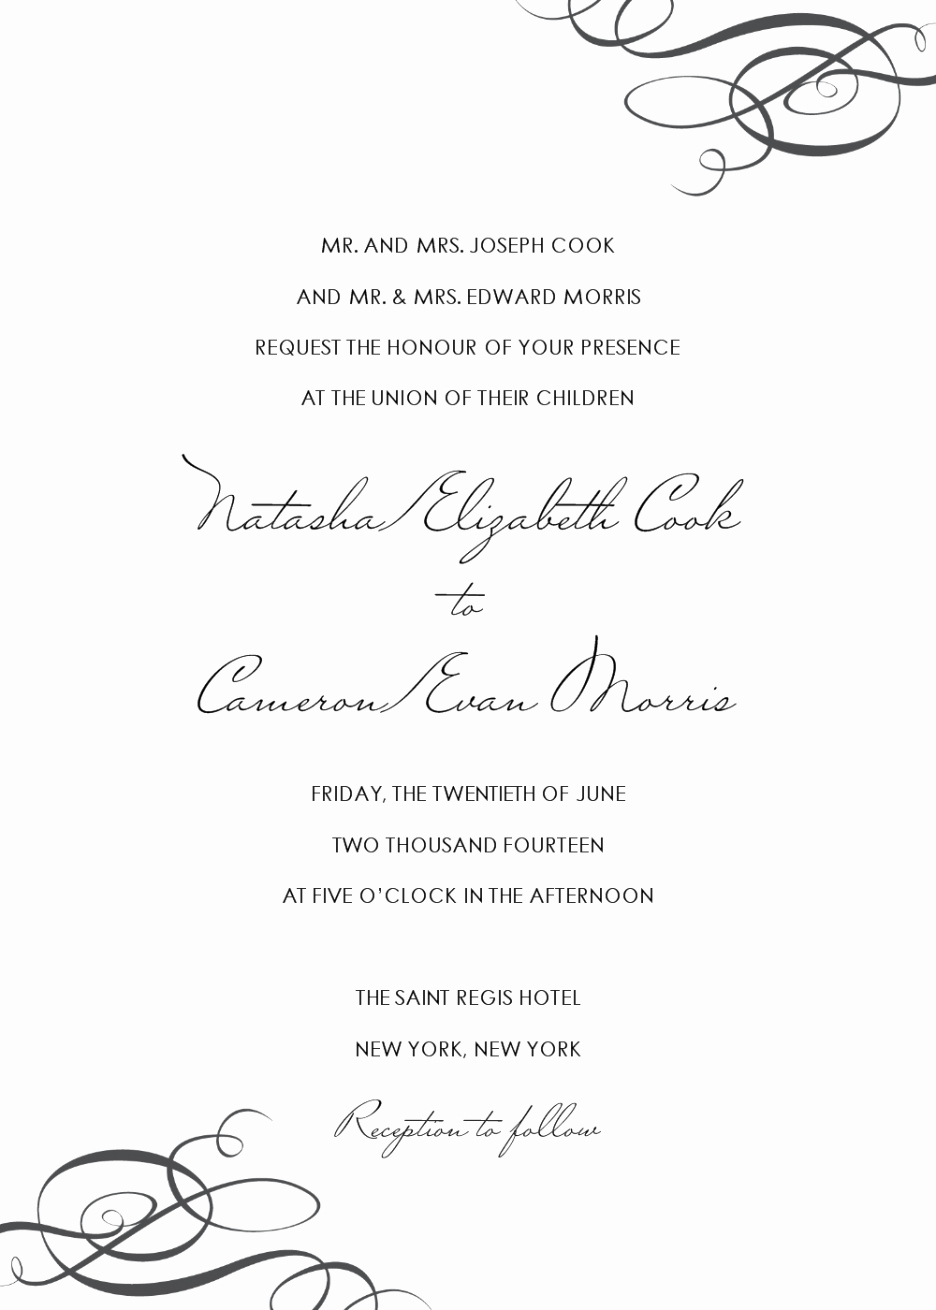 MR. AND MRS. JOSEPH COOK
AND MR. & MRS. EDWARD MORRIS
REQUEST THE HONOUR OF YOUR PRESENCE
AT THE UNION OF THEIR CHILDREN
Natasha Elizabeth Cook
to
Cameron Evan Morris
FRIDAY, THE TWENTIETH OF JUNE
TWO THOUSAND FOURTEEN
AT FIVE O'CLOCK IN THE AFTERNOON
THE SAINT REGIS HOTEL
NEW YORK, NEW YORK
Reception to follow